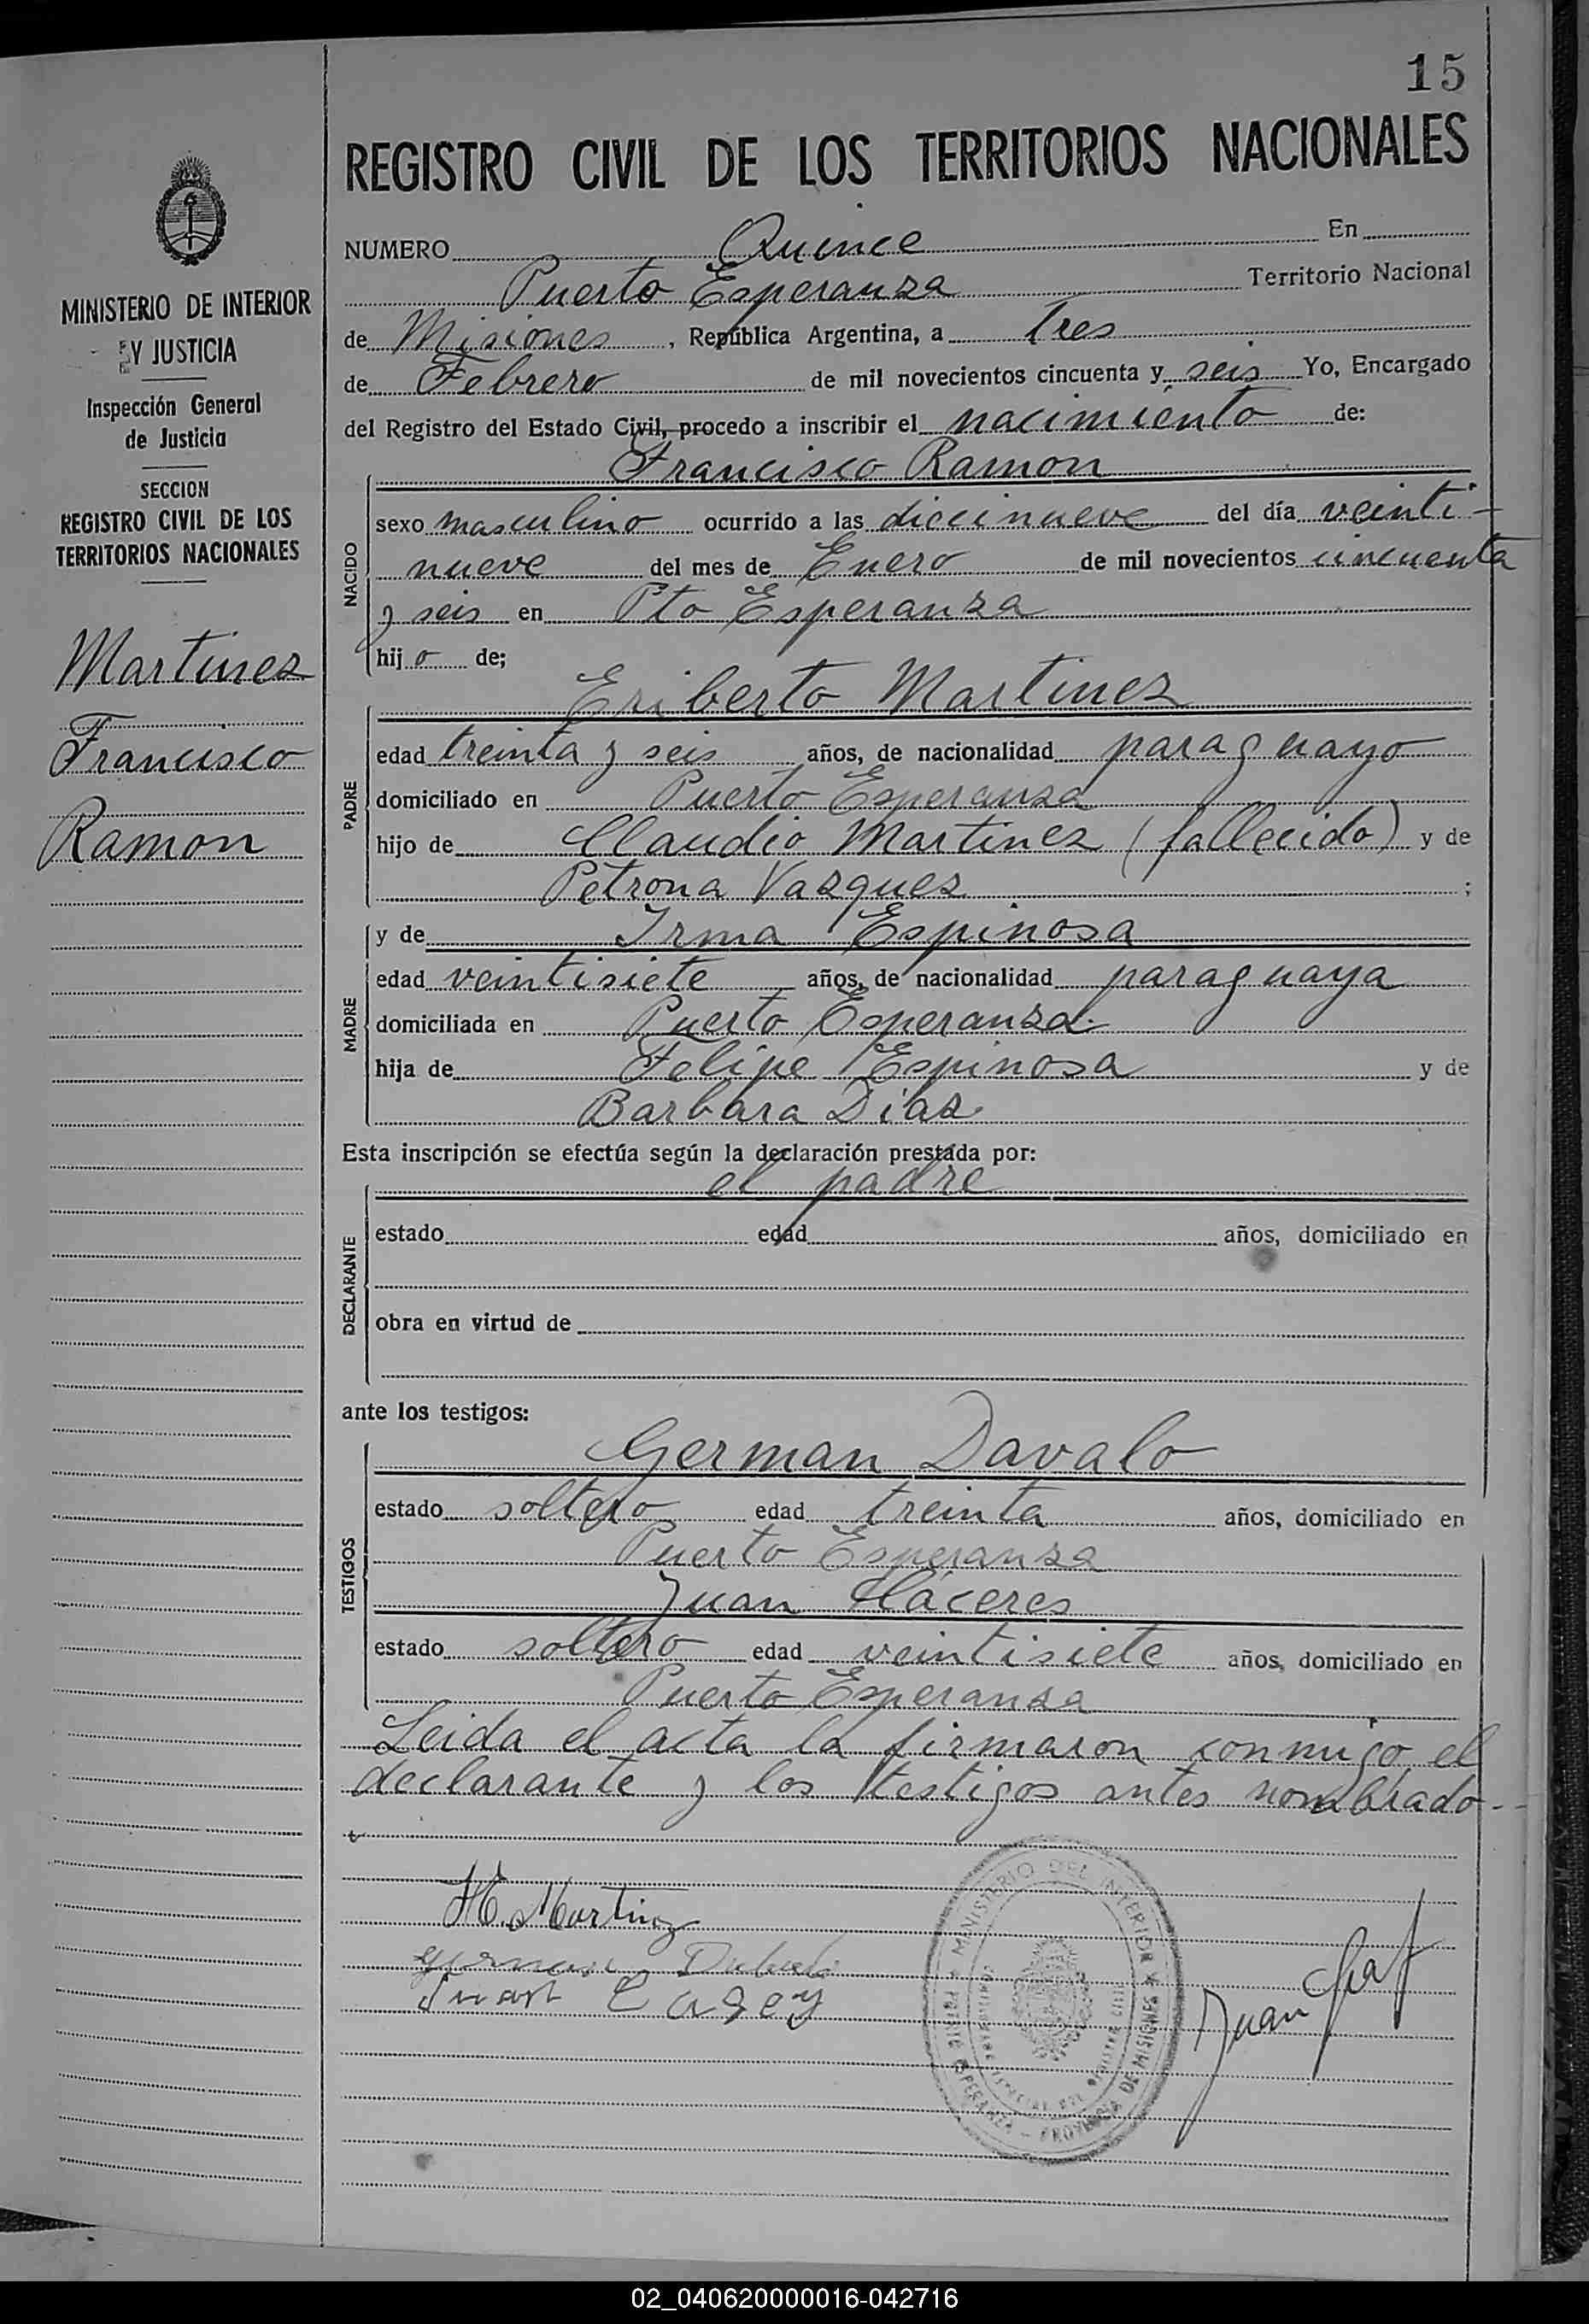 15
REGISTRO CIVIL DE LOS TERRITORIOS NACIONALES
MINISTERIO DE INTERIOR
Y JUSTICIA
Inspección General
de Justicia
SECCION
REGISTRO CIVIL DE LOS
TERRITORIOS NACIONALES
Martinez
Francisco
Ramon
NUMERO Quince En
Puerto Esperanza Territorio Nacional
de Misiones, República Argentina, a Tres
de Febrero de mil novecientos cincuenta y seis Yo, Encargado
del Registro del Estado Civil, procedo a inscribir el nacimiento de:
Francisco Ramon
NACIDO
sexo masculino ocurrido a las diecinueve del día veinti-
nueve del mes de Enero de mil novecientos cincuenta
y seis en Pto Esperanza
hijo de;
Eriberto Martinez
PADRE
edad treinta y seis años, de nacionalidad paraguayo
domiciliado en Puerto Esperanza
hijo de Claudio Martinez (fallecido) y de
Petrona Vazquez ;
y de Irma Espinosa
MADRE
edad veintisiete años, de nacionalidad paraguaya
domiciliada en Puerto Esperanza.
hija de Felipe Espinosa y de
Barbara Diaz
Esta inscripción se efectúa según la declaración prestada por:
el padre
DECLARANTE
estado edad años, domiciliado en
obra en virtud de
ante los testigos:
German Davalo
TESTIGOS
estado soltero edad treinta años, domiciliado en
Puerto Esperanza
Juan Cáceres
estado soltero edad veintisiete años, domiciliado en
Puerto Esperanza
Leida el acta la firmaron conmigo el
declarante y los testigos antes nombrado-
H. Martinez
Juan
MINISTERIO DEL INTERIOR
PUERTO ESPERANZA - PROVINCIA DE MISIONES
Juan
02_040620000016-042716